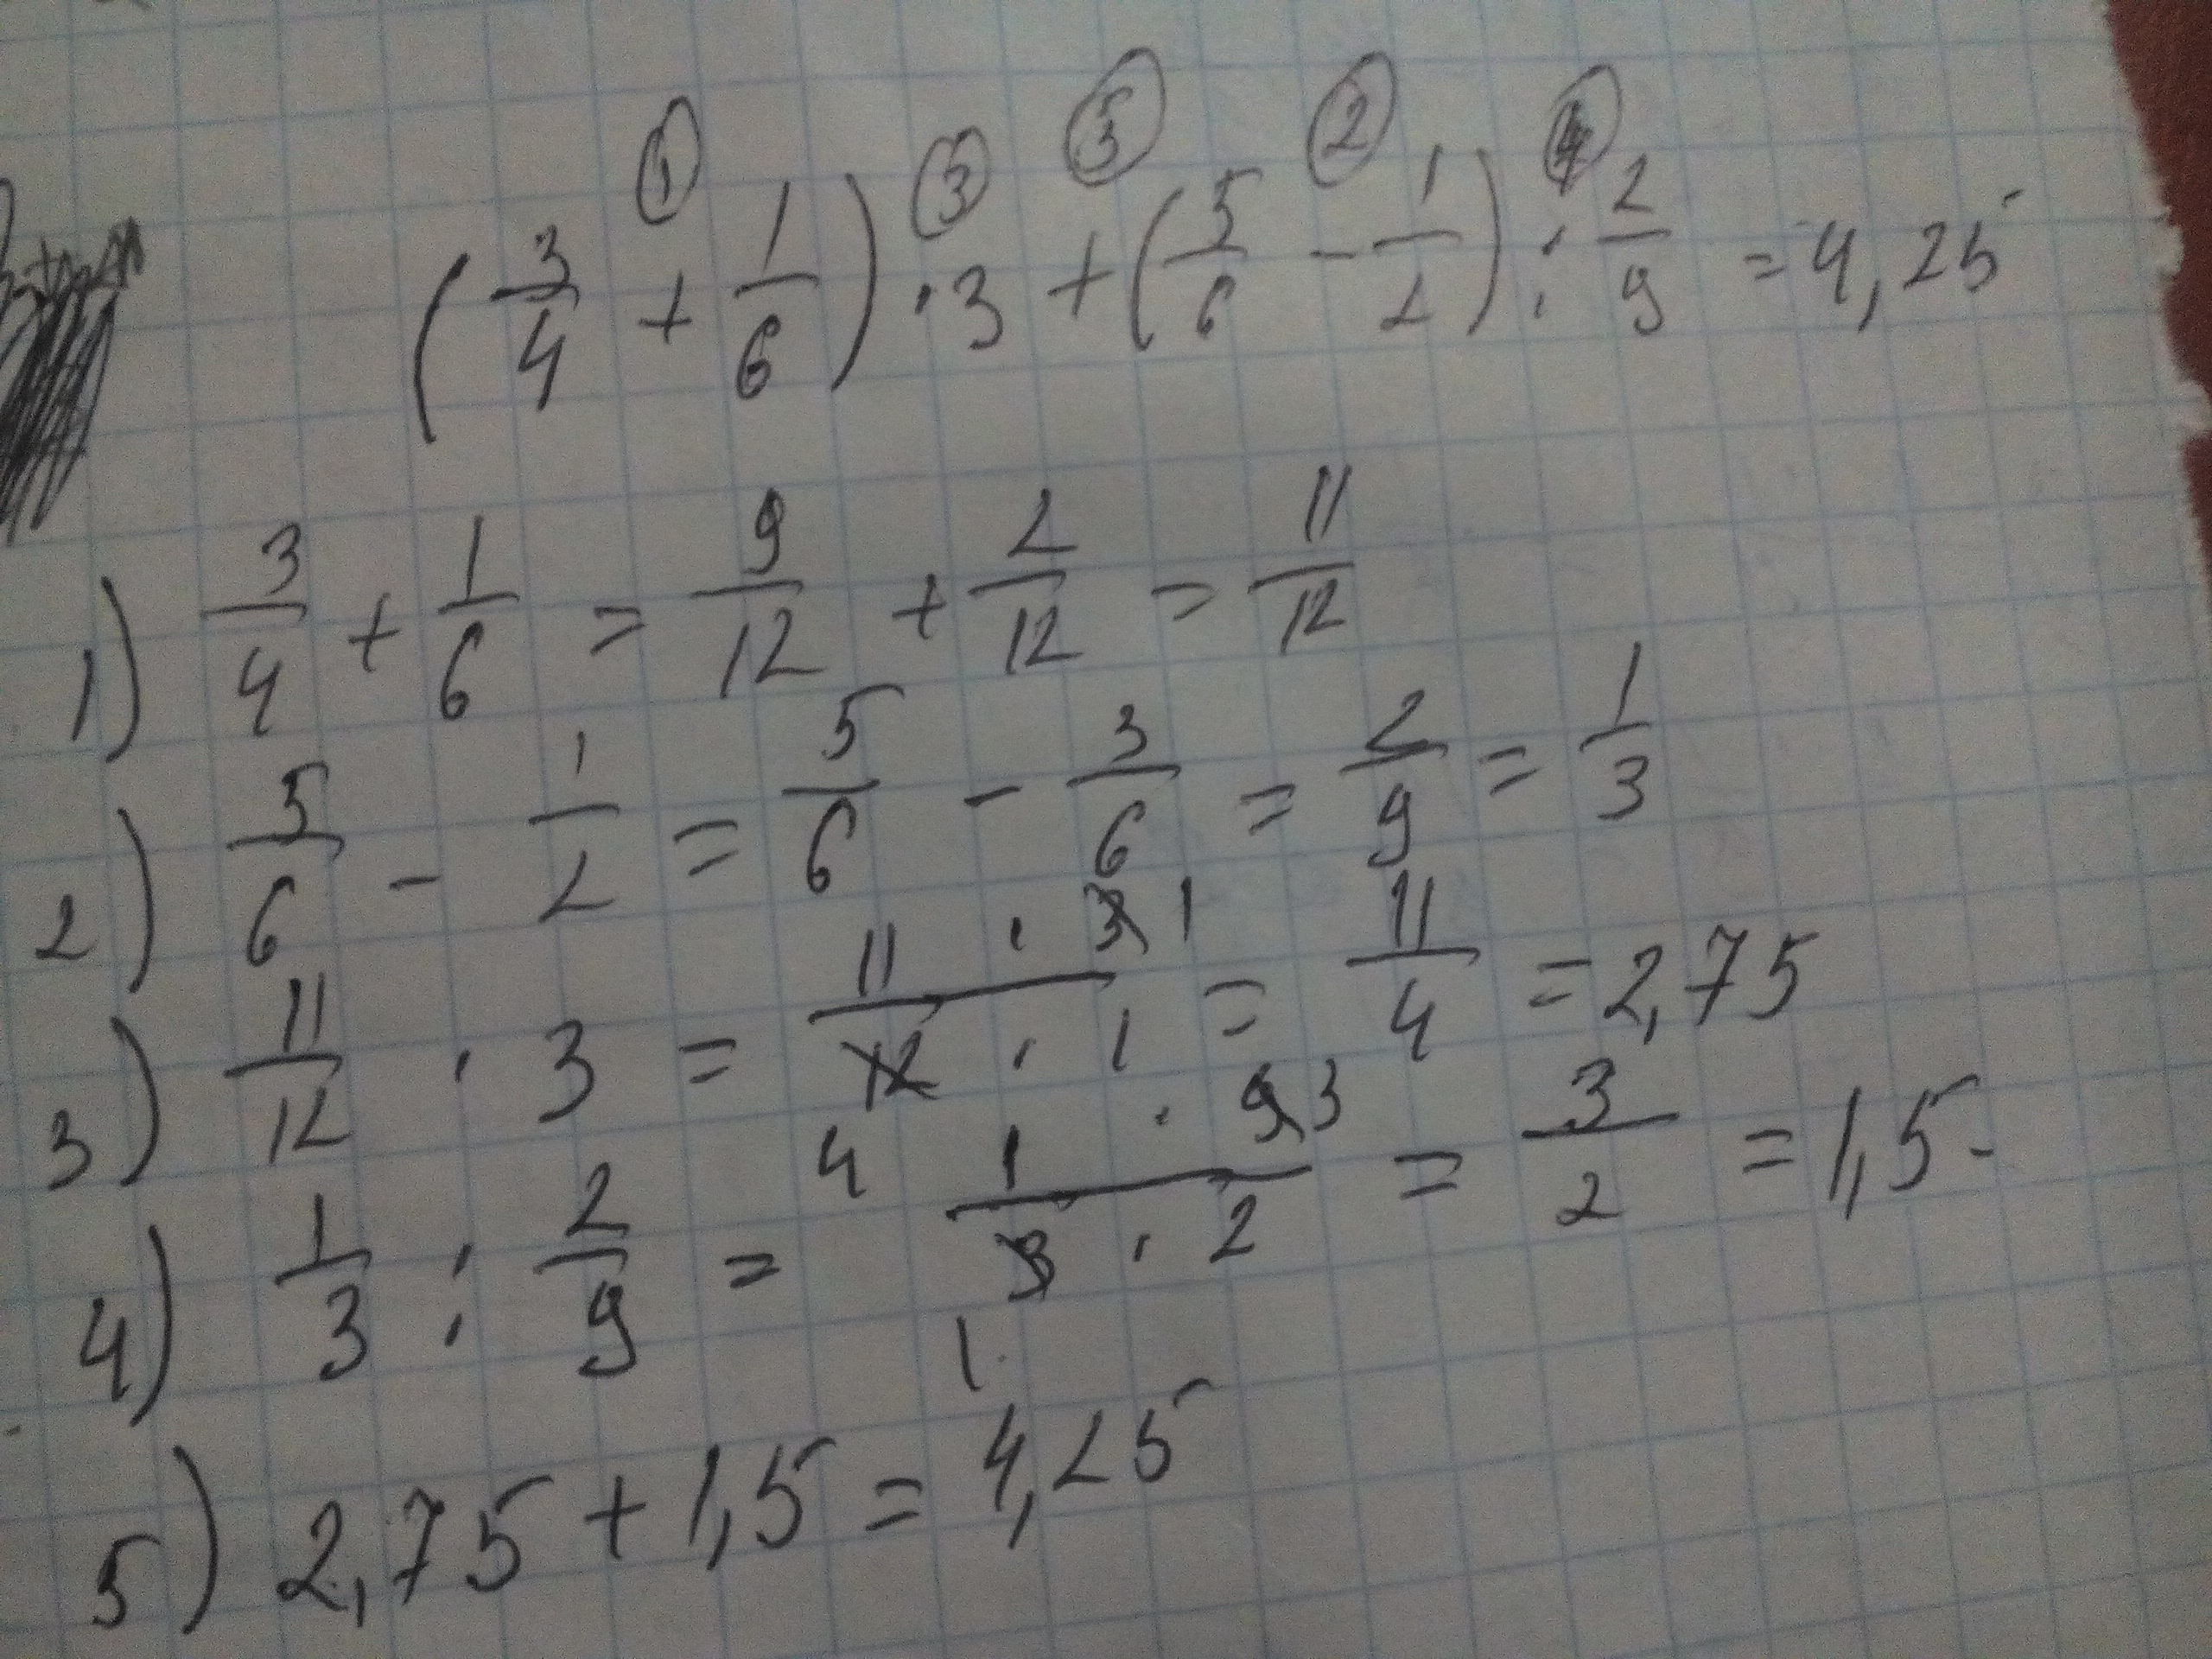 ① ③ ⑤ ② ④
(3/4 + 1/6) · 3 + (5/6 - 1/2) : 2/9 = 4,25
1) 3/4 + 1/6 = 9/12 + 2/12 = 11/12
2) 5/6 - 1/2 = 5/6 - 3/6 = 2/9 = 1/3
3) 11/12 · 3 = 11 · 3 1 / 12 4 · 1 = 11/4 = 2,75
4) 1/3 : 2/9 = 1 · 9 3 / 3 1 · 2 = 3/2 = 1,5
5) 2,75 + 1,5 = 4,25